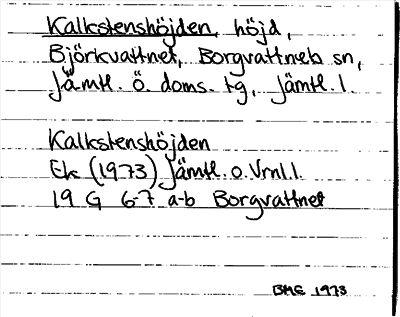 Kalkstenshöjden, höjd,
Björkvattnet, Borgvattnets sn,
Jämtl. ö. doms. tg, Jämtl. l.
Kalkstenshöjden
Ek (1973) Jämtl. o. Vrml. l.
19 G 6-7 a-b Borgvattnet
BME 1973